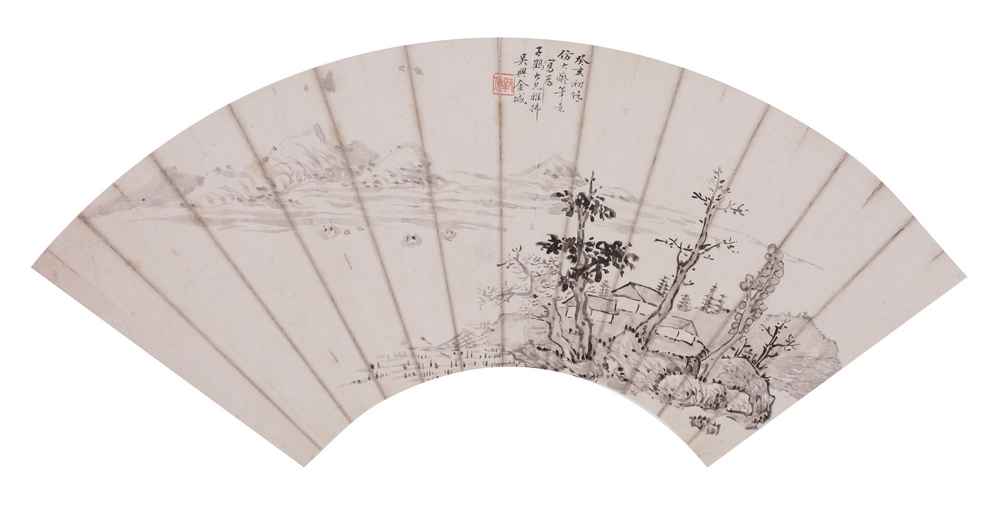 癸亥初冬
仿大癡筆意
寫為
子鶴大兄雅拂
吳興金城